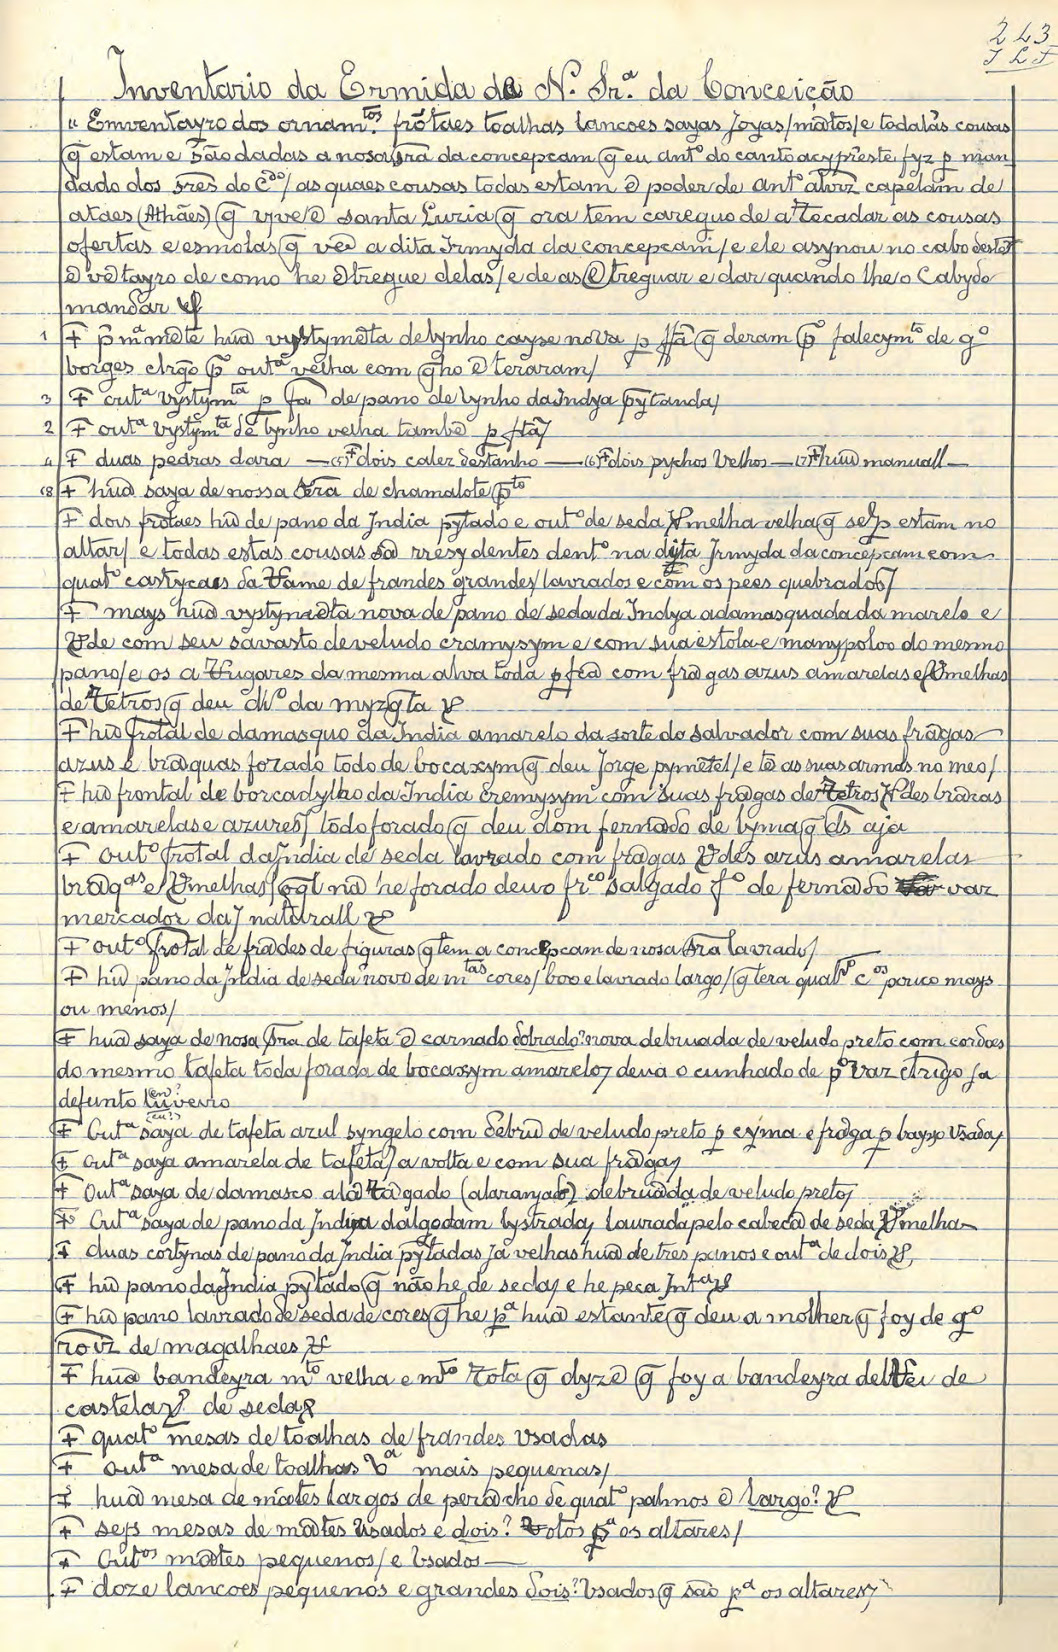 243
Inventario da Ermida de N.ª Sr.ª da Conceição
" Emventayro dos ornam.tos frõtaes toalhas lancoes sayas Joyas/mãtos/e todalas cousas
q̃ estam e são dadas a nosa sra da concepcam q̃ eu ant.º do canto acypreste fyz p man
dado dos sres do c.do/ as quaes cousas todas estam ẽ poder de ant.º alvrz capelam de
ataes (Athães) q̃ vyve ẽ santa Luzia q̃ ora tem careguo de aRecadar as cousas
ofertas e esmolas q̃ vẽ a dita Irmyda da concepcam/e ele asynou no cabo deste
ẽvẽtayro de como he ẽtregue delas/e de as ẽtreguar e dar quando lhe o Cabydo
mandar
1 Ŧ p̃mr.ª mẽte hũa vystymẽta de lynho cayse nova p ffã q̃ deram p.º falecym.to de g.º
borges clrgõ p.º out.ª velha com q̃ ho ẽteraram/
3 Ŧ out.ª vystym.ta p fã de pano de lynho da Indya pỹtanda/
2 Ŧ out.ª vystym.ta de lynho velha tambẽ p ffã/
4 Ŧ duas pedras dara — (5) Ŧ dois calez destanho — (6) Ŧ dois pychos Velhos — (7) Ŧ hũu manuall —
(8 Ŧ hũa saya de nossa sra de chamalote p.to
Ŧ dois frõtaes hũ de pano da India pỹtado e out.º de seda Vmelha velha q̃ seJp estam no
altar/ e todas estas cousas sã rresydentes dent.º na dyta Irmyda da concepcam com
quat.º castycaes da Rame de frandes grandes/lavrados e com os pees quebrados/
Ŧ mays hũa vystymẽta nova de pano de seda da Indya adamasquada da marelo e
Vde com seu savasto de veludo cramysym e com sua estola e manypoloo do mesmo
pano/e os a Rugares da mesma alva toda p fcã com frãgas azus amarelas e Vmelhas
de Retros q̃ deu dk.º da myzq̃ta
Ŧ hũ frõtal de damasquo da India amarelo da sorte do salvador com suas frãgas
azus e brãquas forado todo de bocaxym q̃ deu Jorge pymẽtel/e tẽ as suas armas no meo/
Ŧ hũ frontal de borcadylho da India Cremysym com suas frãgas de Retros Vdes brãcas
e amarelas e azures/ todo forado q̃ deu dom fernãdo de lyma q̃ ds aja
Ŧ Out.º frõtal da India de seda lavrado com frãgas Vdes azus amarelas
brãq.as e Vmelhas/oql nã he forado deuo fr.co salgado f.º de fernãdo vaz
mercador da J naturall
Ŧ out.º frõtal de frãdes de figuras q̃ tem a concepcam de nosa sra lavrado/
Ŧ hũ pano da India de seda novo de m.tas cores/ boo e lavrado largo/q̃ tera quat.º c.os pouco mays
ou menos/
Ŧ hũa saya de nosa sra de tafeta ẽ carnado dobrado? nova debruada de veludo preto com cordões
do mesmo tafeta toda forada de bocaxym amarelo/ deua o cunhado de p.º Vaz clrigo Ja
defunto
Ŧ Out.ª saya de tafeta azul syngelo com debrũ de veludo preto p cyma e frãga p bayxo Usada/
Ŧ out.ª saya amarela de tafeta/ a volta e com sua frãga/
Ŧ Out.ª saya de damasco alaRãgado (alaranjado) debruãda de veludo preto/
Ŧ Out.ª saya de pano da Indya dalgodam lystrada/ laurada pelo cabeca de seda Vmelha
Ŧ duas cortynas de pano da India pỹtadas Ja velhas hũa de tres panos e out.ª de dois
Ŧ hũ pano da India pỹtado q̃ não he de seda/ e he peca Int.ra
Ŧ hũ pano lavrado de seda de cores q̃ he p.ª hũa estante q̃ deu a molher q̃ foy de g.º
rõiz de magalhaes
Ŧ hũa bandeyra m.to velha e m.to Rota q̃ dyzẽ q̃ foy a bandeyra del Rei de
castela de seda
Ŧ quat.º mesas de toalhas de frandes Usadas
Ŧ out.ª mesa de toalhas mais pequenas/
Ŧ hũa mesa de mãtes largos de perãcho de quat.º palmos ẽ largo?
Ŧ seys mesas de mãtes Usados e dois? Rotos p.ª os altares/
Ŧ Out.os mãtes pequenos/e Usados —
Ŧ doze lancoes pequenos e grandes dois? Usados q̃ são p.ª os altares/